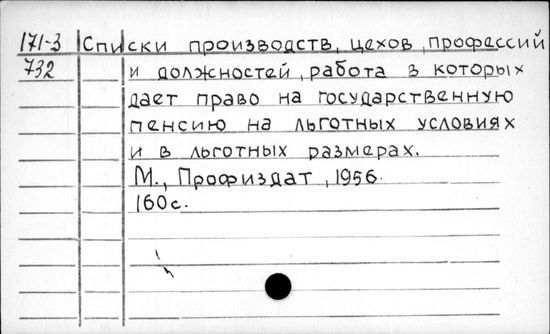 171-3 Списки производств, цехов, профессий
732 и должностей, работа в которых
дает право на государственную
пенсию на льготных условиях
и в льготных размерах.
М., Профиздат, 1956.
160с.